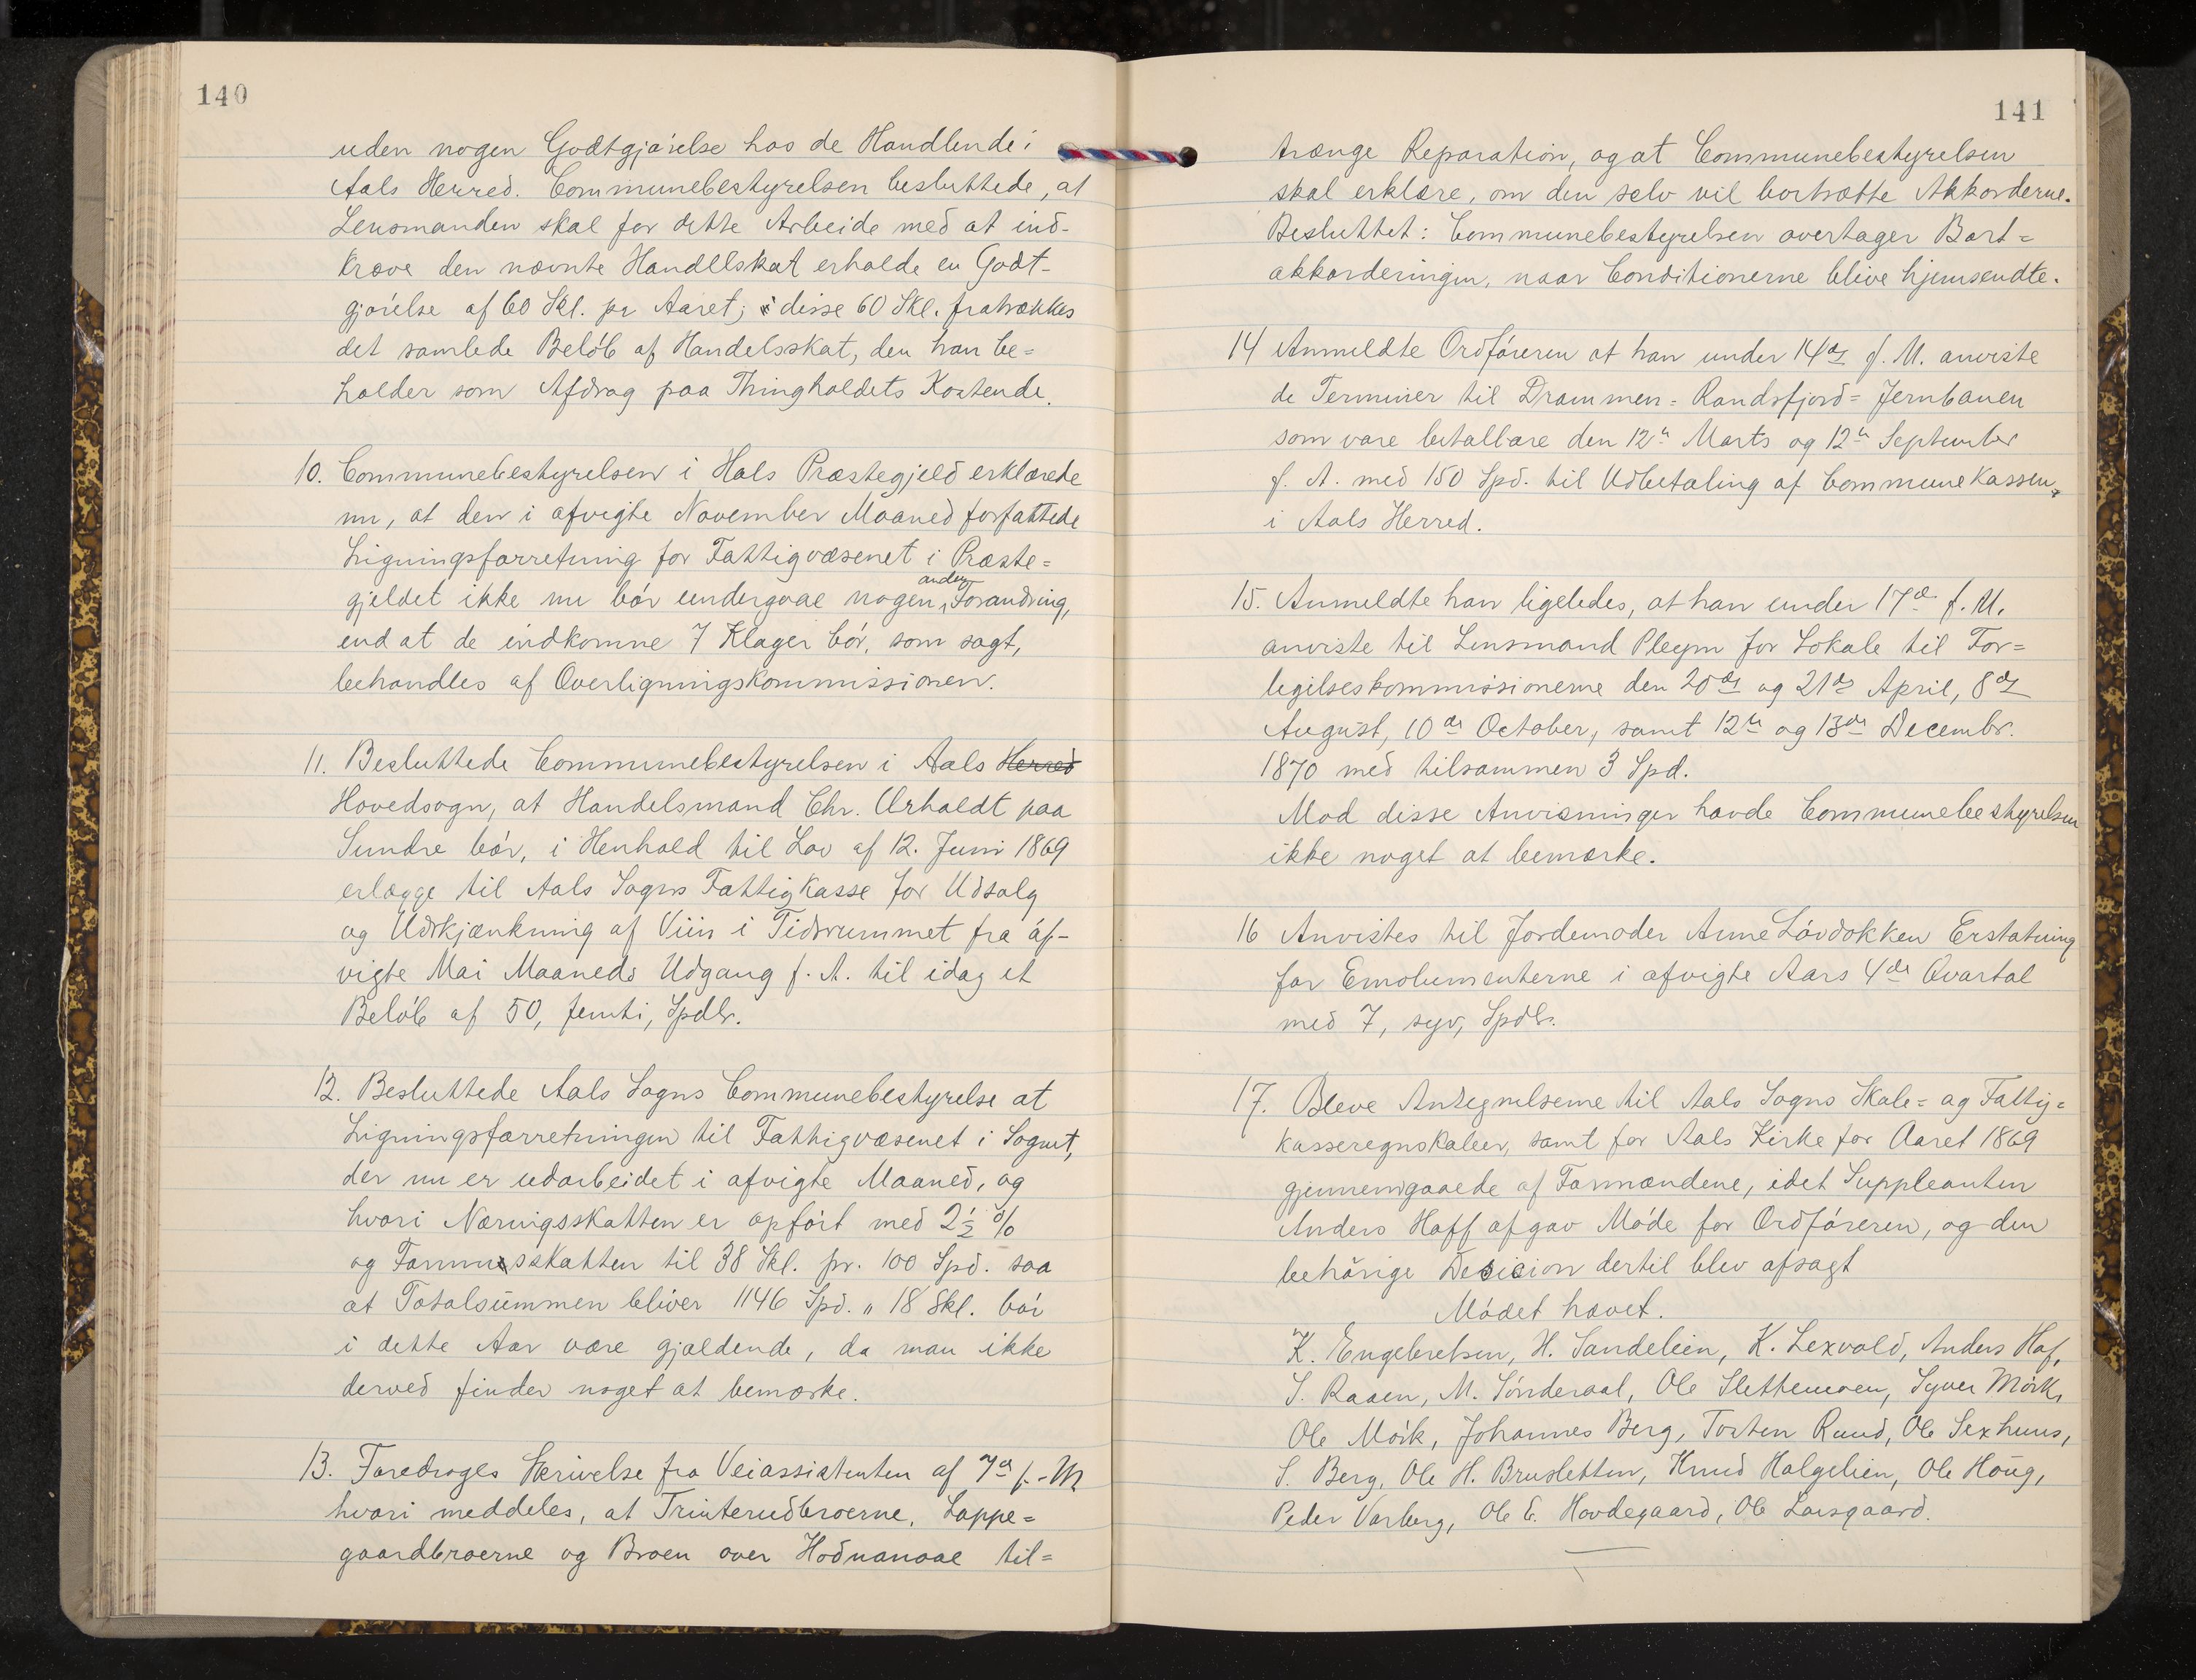 140
uden nogen Godtgjørelse hos de Handlende i
Aals Herred. Communebestyrelsen besluttede, at
Lensmanden skal for dette Arbeide med at ind-
kræve den nævnte Handelskat erholde en Godt-
gjørelse af 60 Skl. pr Aaret; disse 60 Skl. fratrækkes
det samlede Beløb af Handelsskat, den han be=
holder som Afdrag paa Thingholdets Kostende.
10. Communebestyrelsen i Hols Præstegjeld erklærede
nu, at den i afvigte November Maaned forfattede
Ligningsforretning for Fattigvæsenet i Præste=
gjeldet ikke nu bør undergaae nogen anden Forandring,
end at de indkomne 7 Klager bør, som sagt,
behandles af Overligningskommissionen.
11. Besluttede Communebestyrelsen i Aals Herred
Hovedsogn, at Handelsmand Chr. Ørholdt paa
Sundre bør, i Henhold til Lov af 12. Juni 1869
erlægge til Aals Sogns Fattigkasse for Udsalg
og Udskjænkning af Viin i Tidsrummet fra af-
vigte Mai Maaneds Udgang f. A. til idag et
Beløb af 50, femti, Spdlr.
12. Besluttede Aals Sogns Communebestyrelse at
Ligningsforretningen til Fattigvæsenet i Sognet,
der nu er udarbeidet i afvigte Maaned, og
hvori Næringsskatten er opført med 2½ %
og Formuesskatten til 38 Skl. pr. 100 Spd. saa
at Totalsummen bliver 1146 Spd. " 18 Skl. bør
i dette Aar være gjældende, da man ikke
derved finder noget at bemærke.
13. Foredroges Skrivelse fra Veiassistenten af 7de f. M
hvori meddeles, at Trinterudbroerne, Loppe=
gaardbroerne og Broen over Hodnanaae til=
141
trænge Reparation, og at Communebestyrelsen
skal erklære, om den selv vil bortsætte Akkorderne.
Besluttet: Communebestyrelsen overtager Bort=
akkorderingen, naar Conditionerne blive hjemsendte.
14 Anmeldte Ordføreren at han under 14de f. M. anviste
de Terminer til Drammen=Randsfjord=Jernbanen
som vare betalbare den 12te Marts og 12te September
f. A. med 150 Spd. til Udbetaling af Communekassen
i Aals Herred.
15. Anmeldte han ligeledes, at han under 17de f. M.
anviste til Lensmand Pleym for Lokale til For=
legilseskommissionerne den 20de og 21de April, 8de
August, 10de October, samt 12te og 13de Decembr.
1870 med tilsammen 3 Spd.
Mod disse Anvisninger havde Communebestyrelsen
ikke noget at bemærke.
16 Anvistes til Jordemoder Anne Løvdokken Erstatning
for Emolumenterne i afvigte Aars 4de Qvartal
med 7, syv, Spdlr.
17. Bleve Antegnelserne til Aals Sogns Skole= og Fattig=
kasseregnskaber, samt for Aals Kirke for Aaret 1869
gjennemgaaede af Formændene, idet Suppleanten
Anders Hoff afgav Møde for Ordføreren, og den
behørige Decision dertil blev afsagt
Mødet hævet.
K. Engebretsen, H. Sandelien, K. Lexvold, Anders Hof,
S. Raaen, M. Sønderaal, Ole Slettemoen, Syver Mørk,
Ole Mørk, Johannes Berg, Tosten Ruud, Ole Sexhuus,
S. Berg, Ole H. Brusletten, Knud Holgelien, Ole Houg,
Peder Varberg, Ole E. Hovdegaard, Ole Larsgaard.